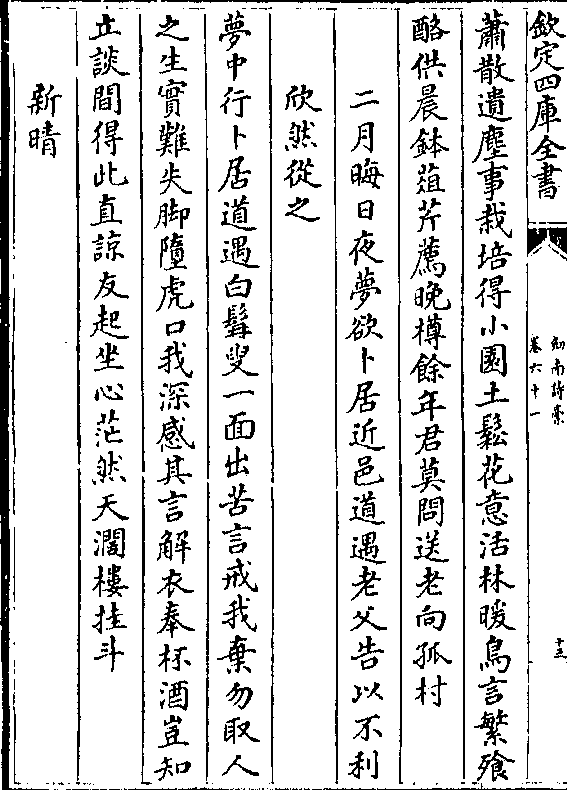 欽定四庫全書
劒南詩藁
卷六十一
十三
蕭散遺塵事栽培得小園土鬆花意活林暖鳥言繁飱
酪供晨鉢葅芹薦晚樽餘年君莫問送老向孤村
二月晦日夜夢欲卜居近邑道遇老父告以不利
欣然從之
夢中行卜居道遇白髯叟一面出苦言戒我棄勿取人
之生實難失脚墮虎口我深感其言解衣奉杯酒豈知
立談間得此直諒友起坐心茫然天濶樓挂斗
新晴